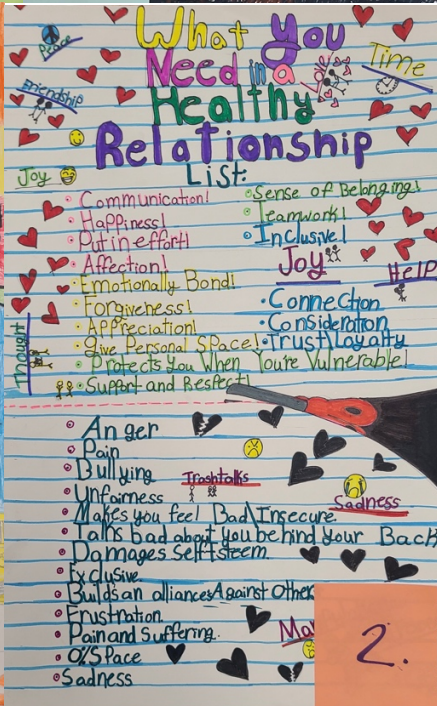 What You
Need in a
Healthy
Relationship
Peace
Love
Time
Friendship
Joy
List:
• Communication!
• Happiness!
• Put in effort!
• Affection!
• Emotionally Bond!
• Forgiveness!
• Appreciation!
• give Personal Space!
• Protects You When You're Vulnerable!
• Support and Respect!
• Sense of Belonging!
• Teamwork!
• Inclusive!
Joy
Help
• Connection
• Consideration
• Trust/Loyalty
Thought
• Anger
• Pain
• Bullying
Trashtalks
• Unfairness
Sadness
• Makes you feel Bad\Insecure.
• Talks bad about you behind your Back
• Damages Selfsteem.
• Exclusive.
• Builds an alliances Against Other
• Frustration.
• Pain and Suffering.
• 0% Space
• Sadness
2.